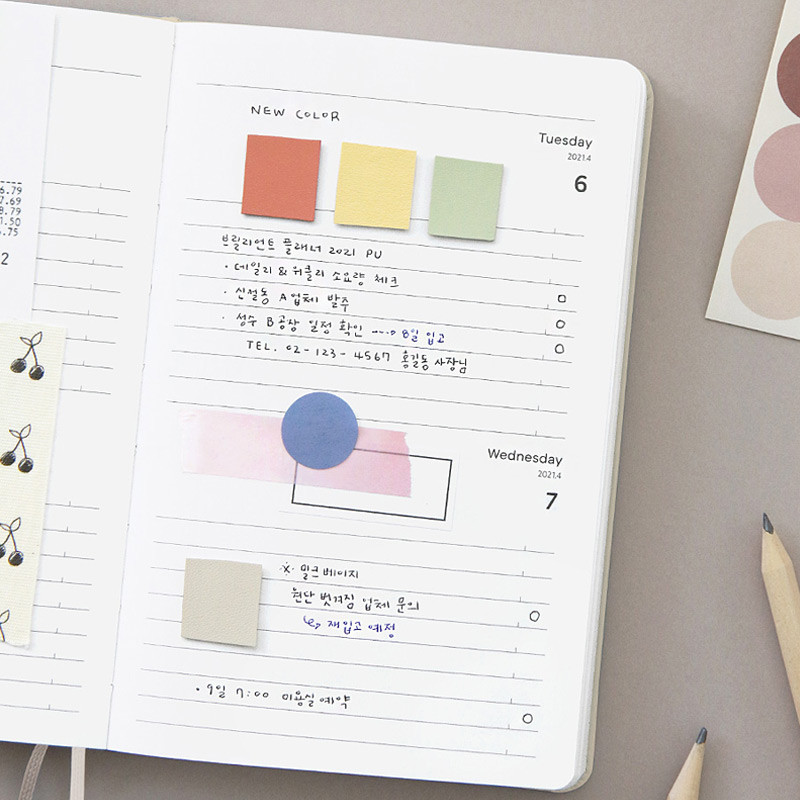 6.79
7.69
8.79
1.50
6.75
2
NEW COLOR
Tuesday
2021.4
6
브릴리언트 플래너 2021 PU
· 데일리 & 위클리 소요량 체크
· 신설동 A업체 발주
· 성수 B공장 일정 확인 ----> 8일 입고
TEL. 02-123-4567 홍길동 사장님
Wednesday
2021.4
7
※ 밀크베이지
원단 벗겨짐 업체 문의
↳ 재입고 예정
· 9일 7:00 미용실 예약